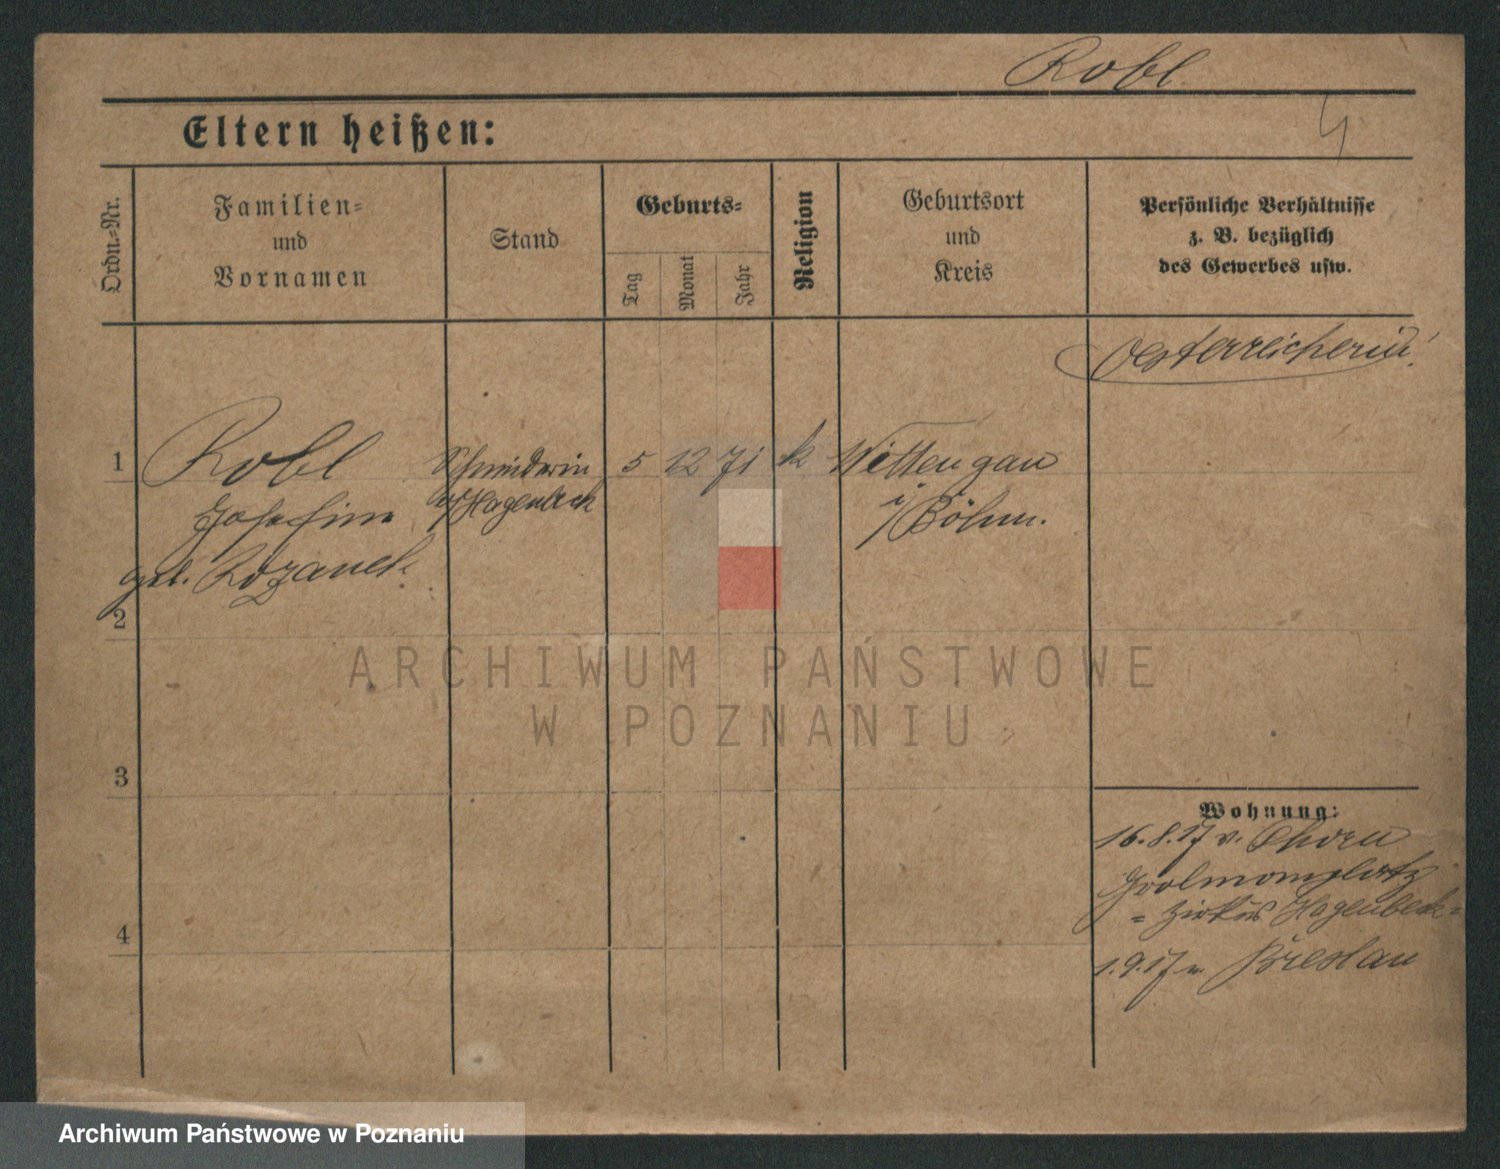 Robl
4
Eltern heißen:
Ordn.-Nr.
Familien-
und
Vornamen
Stand
Geburts-
Tag
Monat
Jahr
Religion
Geburtsort
und
Kreis
Persönliche Verhältnisse
z. B. bezüglich
des Gewerbes usw.
Oesterreicherin!
1
Robl
Schneiderin
5
12
71
k
Wittengau
Josefine
b/Hagenbeck
i/Böhm.
geb. Kozanek
2
3
4
Wohnung:
16.8.17 v. Thorn
Grolmanplatz
= Zirkus Hagenbeck =
1.9.17 n. Breslau
ARCHIWUM PAŃSTWOWE
W POZNANIU
Archiwum Państwowe w Poznaniu